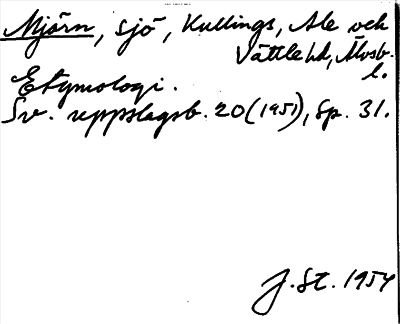 Mjörn, sjö, Kullings, Ale och
Vättle hd, Älvsb.
l.
Etymologi.
Sv. uppslagsb. 20 (1951), sp. 31.
J. St. 1954